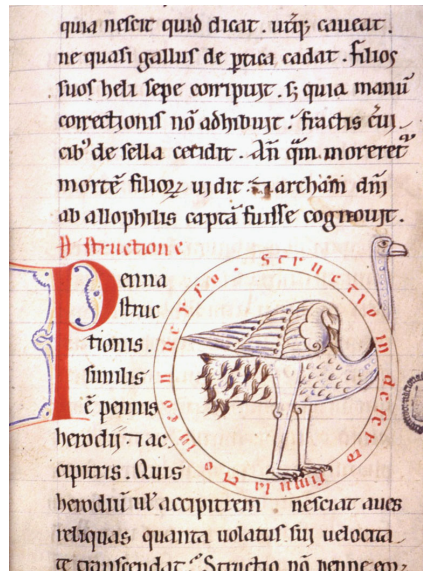 quia nescit quid dicat. utq; caueat.
ne quasi gallus de ptica cadat. Filios
suos heli sepe corripuit. s; quia manū
correctionis nō adhibuit. fractis cui
cib' de sella cecidit. An qm moreret
mortē filioꝝ uidit. ⁊ archam dni
ab allophilis captā fuisse cognouit.
structione
Penna
struc
tionis.
similis
ē pennis
herodii. ⁊ ac
cipitris. Quis
structio in deserto
simulatio in conuerso
herodiū ul' accipitrem nesciat aues
reliquas quanta uolatus sui uelocita
te transcendat. Structio nō penne